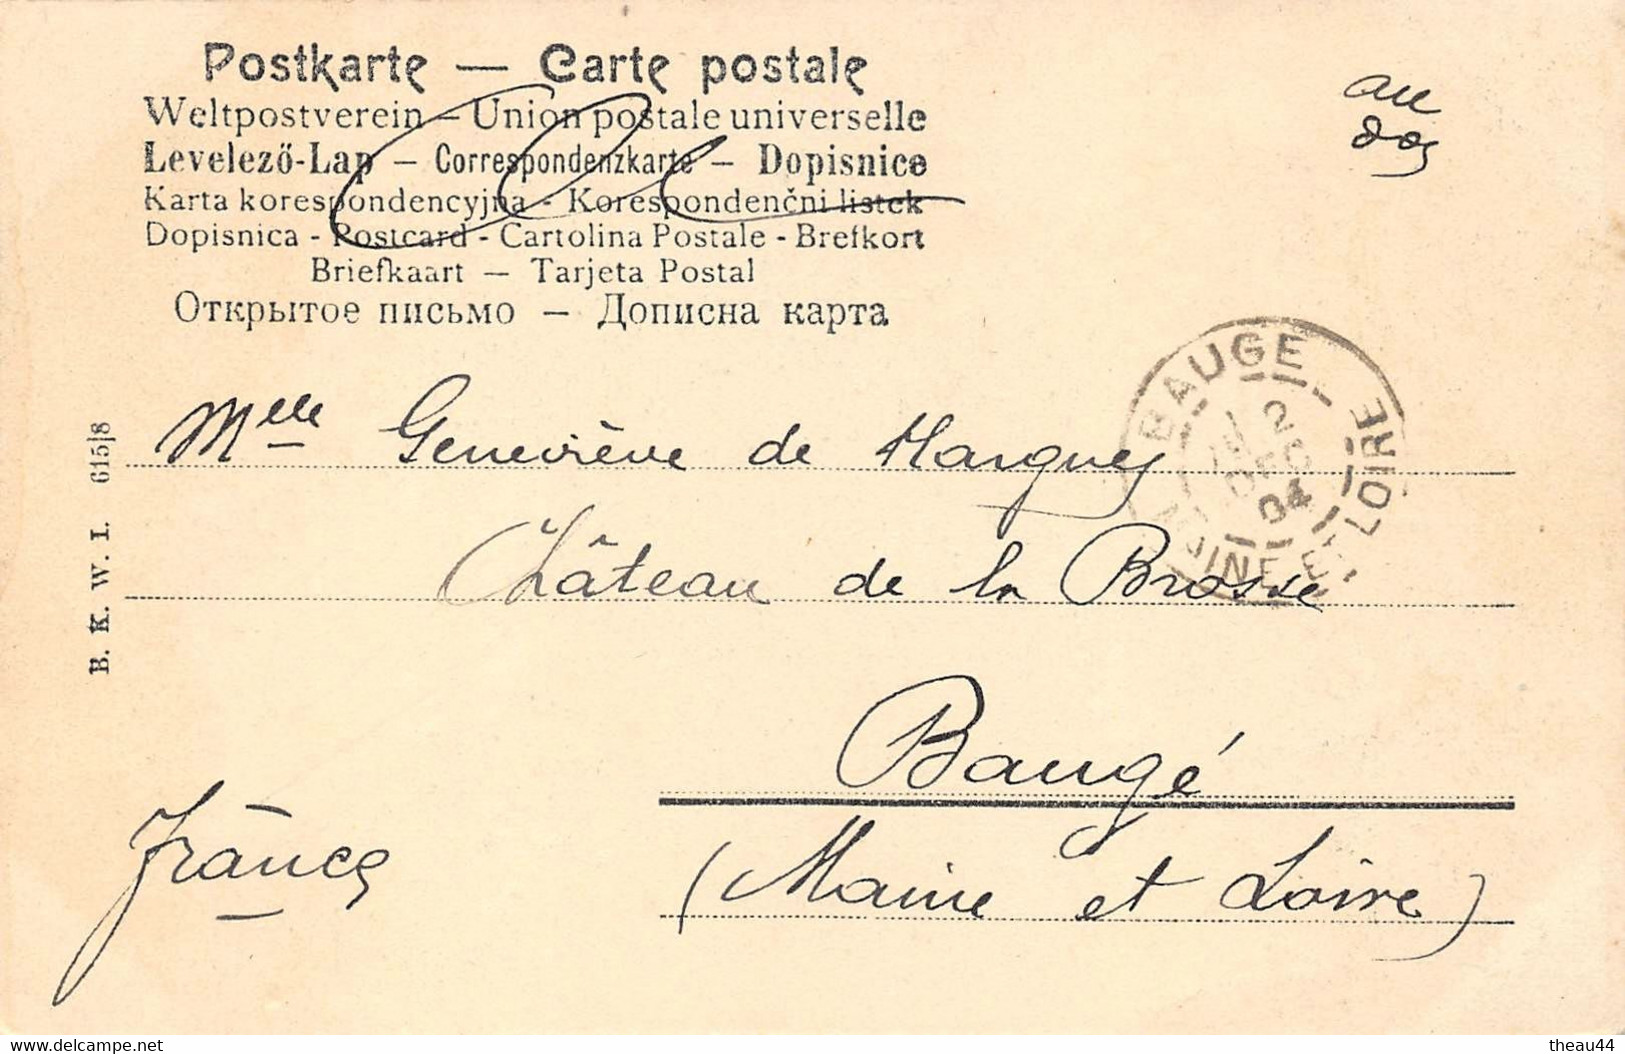 Postkarte — Carte postale
Weltpostverein – Union postale universelle
Levelező-Lap – Correspondenzkarte – Dopisnice
Karta korespondencyjna - Korespondenčni listek
Dopisnica - Postcard - Cartolina Postale - Brefkort
Briefkaart — Tarjeta Postal
Открытое письмо – Дописна карта
au
dos
BAUGE
2
DEC
04
MAINE ET LOIRE
Melle Geneviève de
Château de la Brosse
Baugé
(Maine et Loire)
France
B. K. W. I. 615|8
www.delcampe.net
theau44